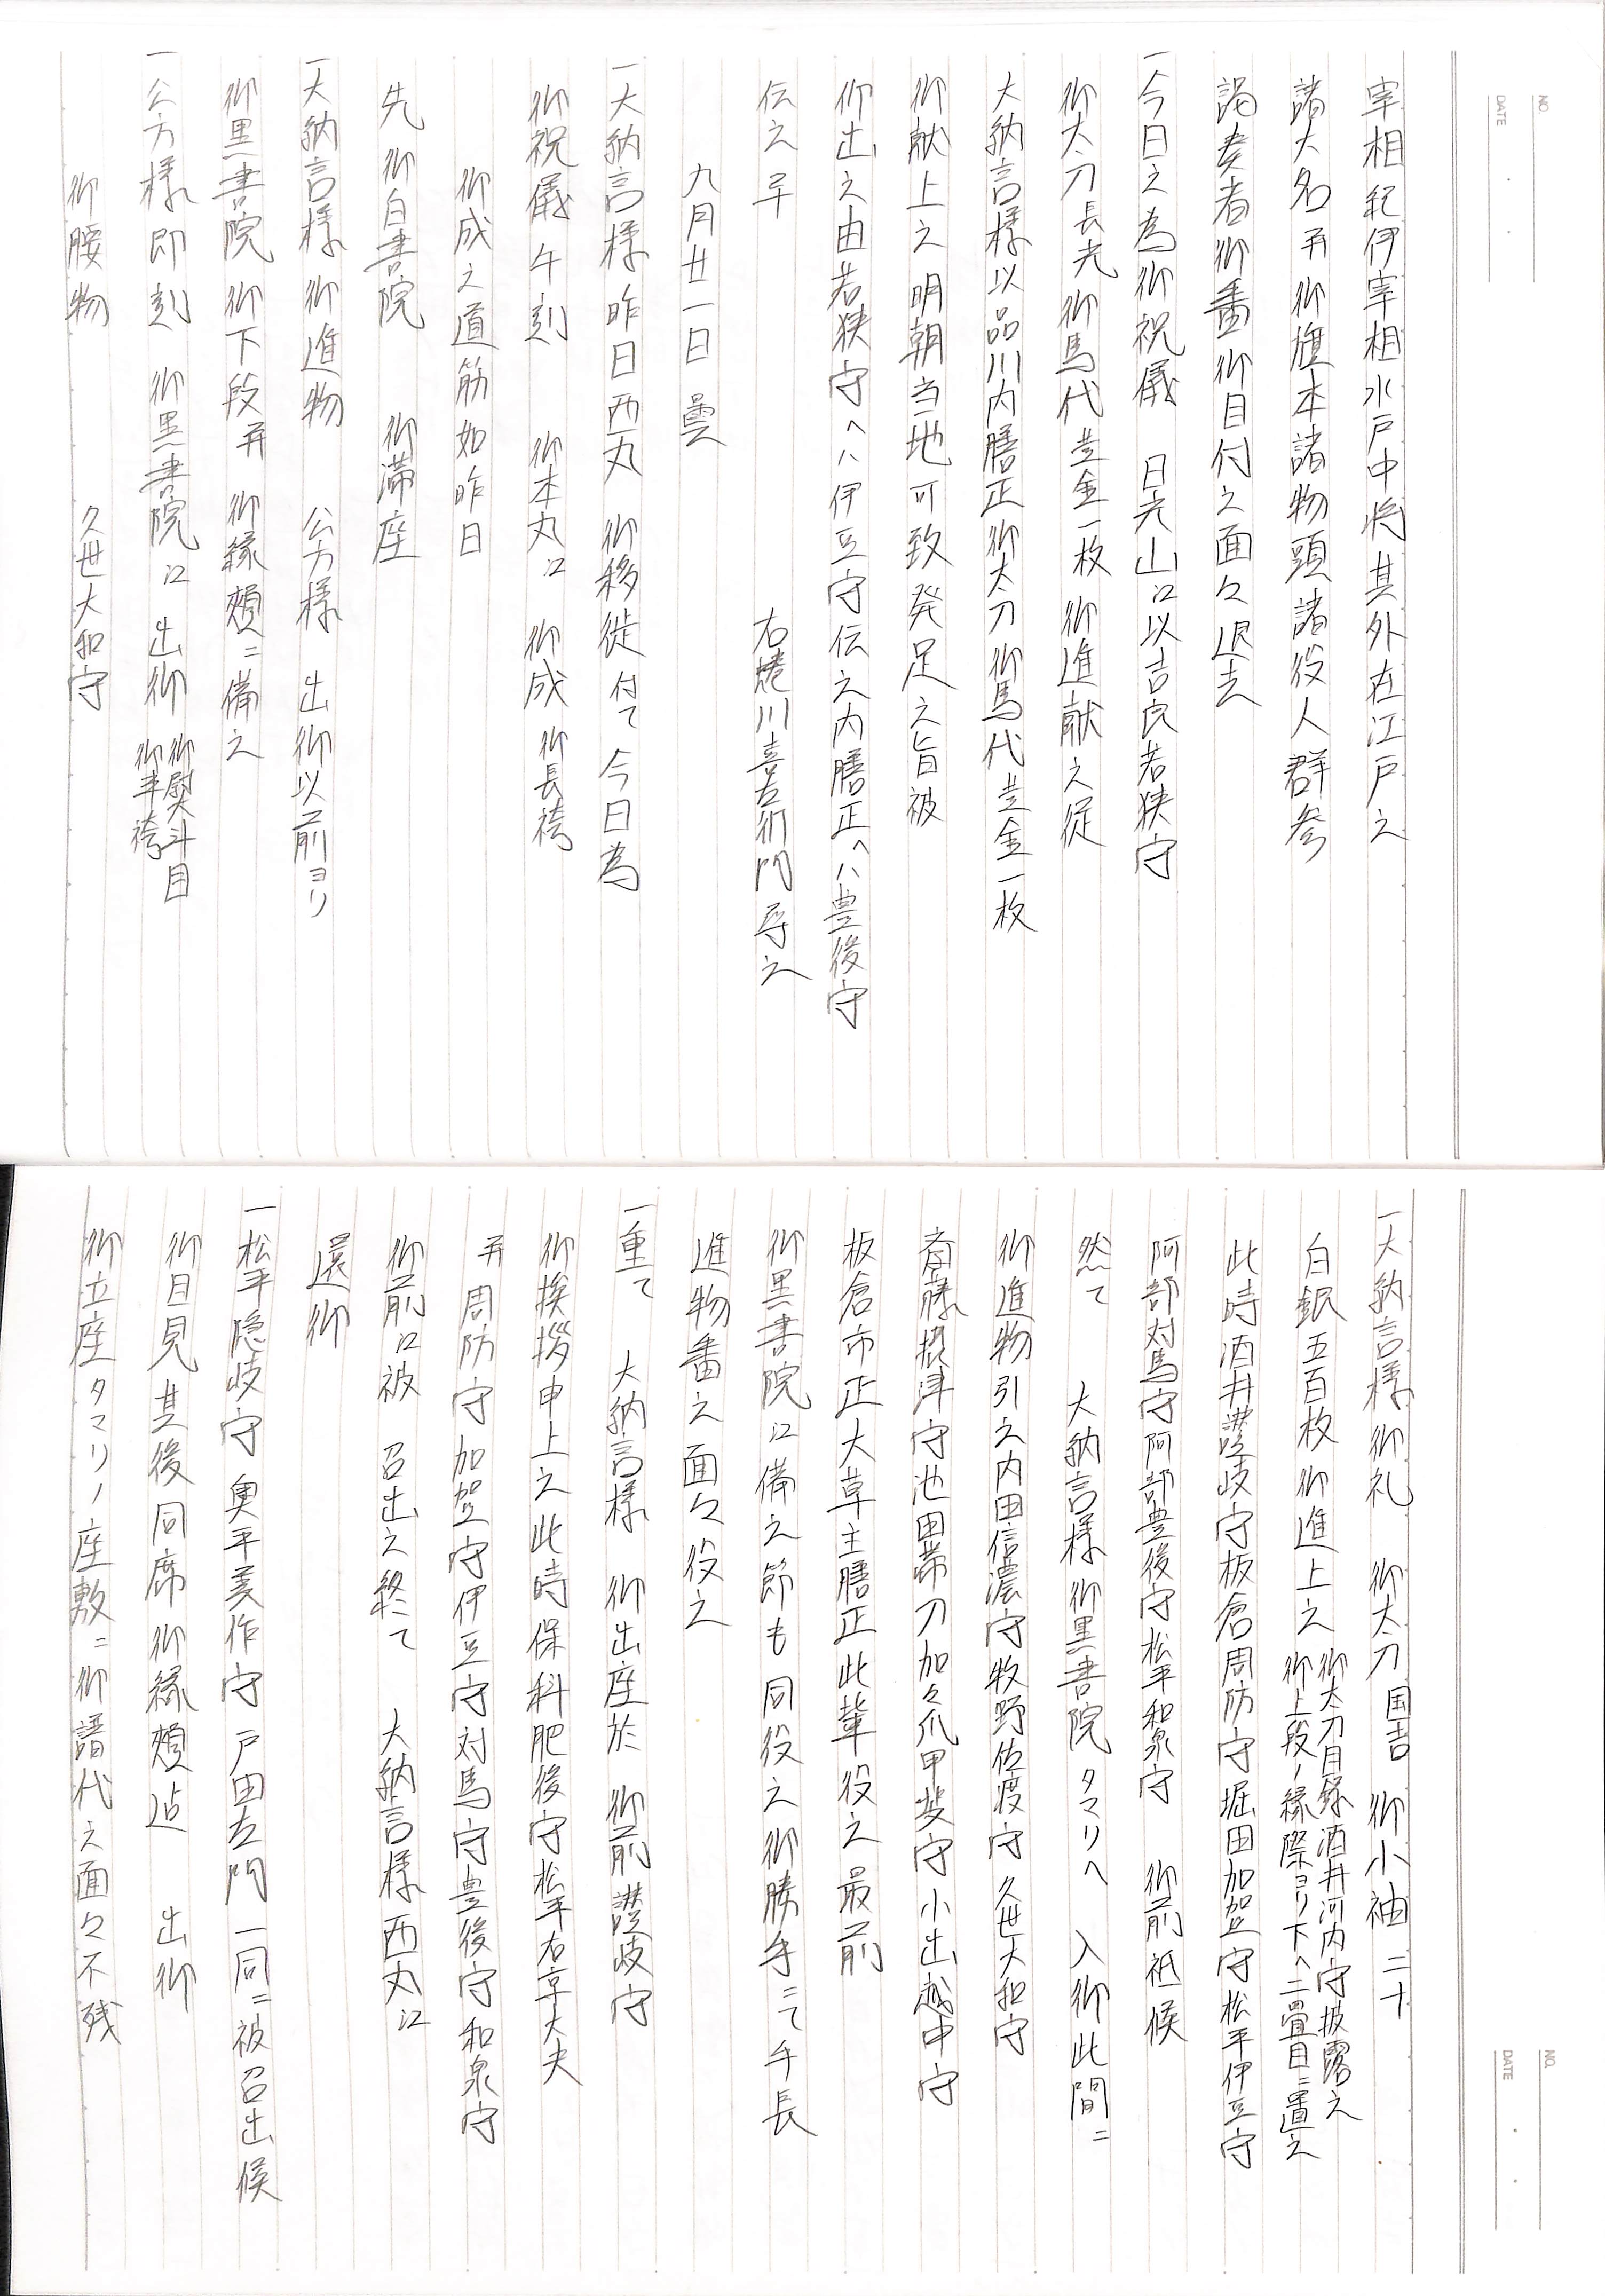 NO.
DATE
宰相紀伊宰相水戸中将其外在江戸之
諸大名并御旗本諸物頭諸役人群参
謁奏者御番御目付之面々退去
一今日之為御祝儀 日光山江以吉良若狭守
御太刀長光御馬代黄金一枚御進献之従
大納言様以品川内膳正御太刀御馬代黄金一枚
御献上之明朝当地可致発足之旨被
仰出之由若狭守ヘハ伊豆守伝之内膳正ヘハ豊後守
伝之于 右蜷川喜左衛門尋之
九月廿一日 曇
一大納言様昨日西丸 御移徙付て今日為
御祝儀午刻 御本丸江 御成御長袴
御成之道筋如昨日
先御白書院 御滞座
一大納言様御進物 公方様 出御以前ヨリ
御黒書院御下段并 御縁頬ニ備之
一公方様即刻 御黒書院江 出御 御熨斗目
御半袴
御腰物 久世大和守
NO.
DATE
一大納言様御礼 御太刀国吉 御小袖二十
白銀五百枚御進上之 御太刀目録酒井河内守披露之
御上段ノ縁際ヨリ下ヘ二畳目ニ置之
此時酒井讃岐守板倉周防守堀田加賀守松平伊豆守
阿部対馬守阿部豊後守松平和泉守 御前祗候
然て 大納言様御黒書院タマリヘ 入御此間ニ
御進物引之内田信濃守牧野佐渡守久世大和守
斎藤摂津守池田帯刀加々爪甲斐守小出越中守
板倉市正大草主膳正此輩役之最前
御黒書院江備之節も同役之御勝手ニて手長
進物番之面々役之
一重て 大納言様 御出座於 御前讃岐守
御挨拶申上之此時保科肥後守松平右京大夫
并周防守加賀守伊豆守対馬守豊後守和泉守
御前江被 召出之終て 大納言様西丸江
還御
一松平隠岐守奥平美作守戸田左門一同ニ被召出候
御目見其後同席御縁頬迠 出御
御立座タマリノ座敷ニ御譜代之面々不残